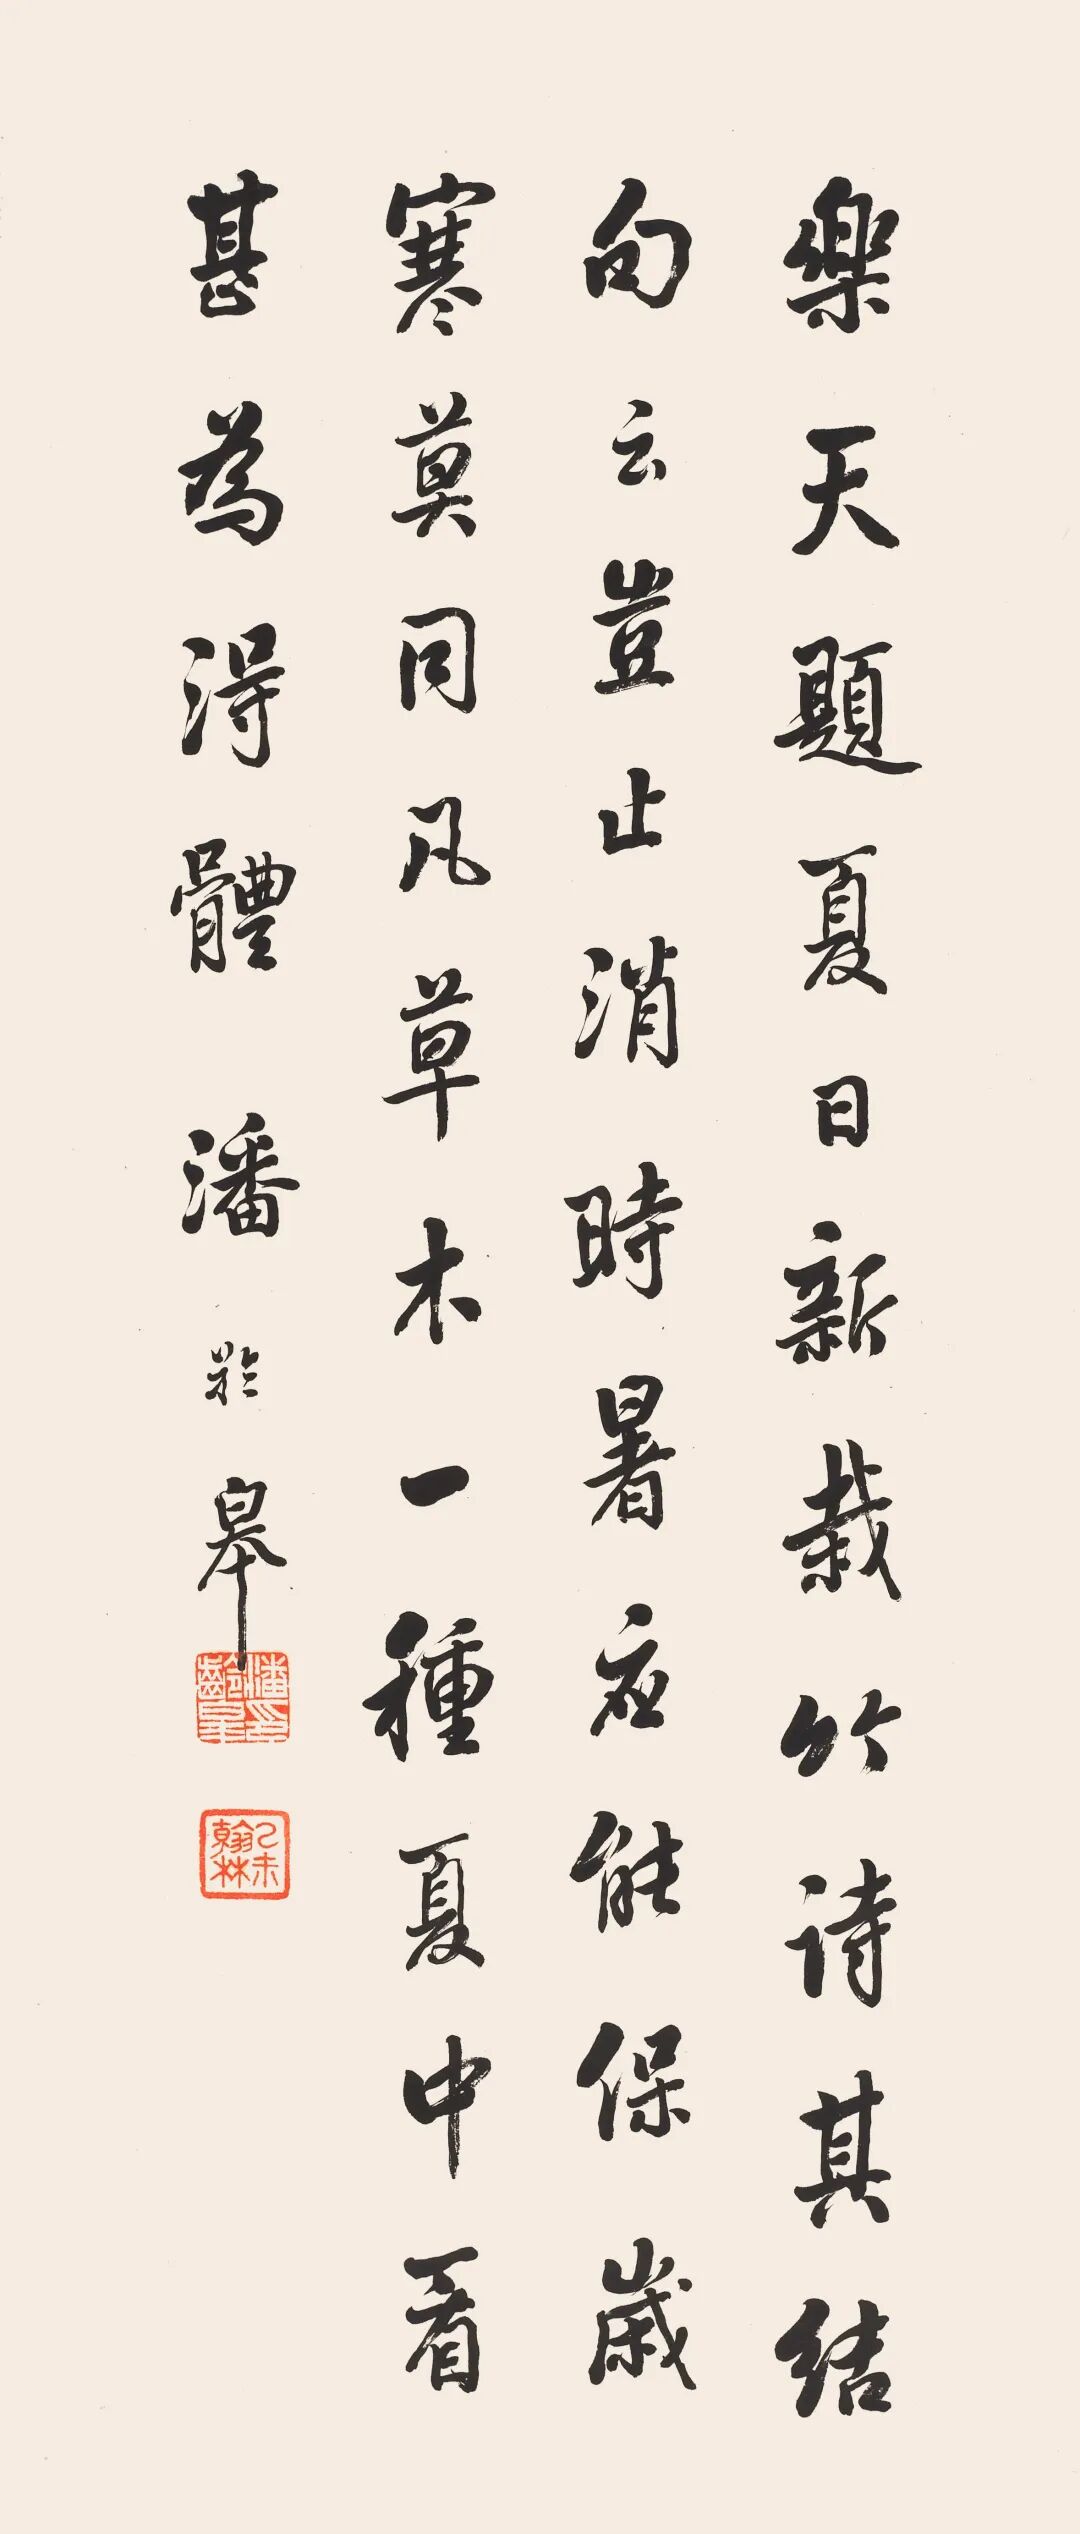 樂天題夏日新栽竹诗其结
句云豈止消時暑应能保歲
寒莫同凡草木一種夏中看
甚為淂體 潘龄皋
潘龄皋印
乙未翰林